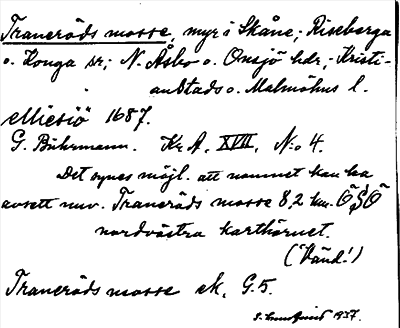 Traneröds mosse, myr i Skåne; Riseberga
o. Konga sr; N. Åsbo o. Onsjö hdr; Kristi-
anstads o. Malmöhus l.
1687.
G. Buhrmann. Kr A. XVII, N:o 4.
Det synes möjl. att namnet kan ha
avsett nuv. Traneröds mosse 8,2 km. ÖSÖ
nordvästra karthörnet.
(Vänd!)
Traneröds mosse ek. G.5.
1937.